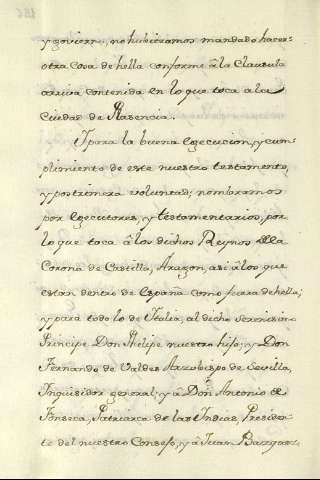 y govierno, no hubieramos mandado hacer
otra Cosa de hella conforme â la Clausula
arriva contenida en lo que toca a la
Ciudad de Plasencia.
Y para la buena Egecucion, y cum-
plimiento de este nuestro testamento,
y postrimera voluntad; nombramos
por Egecutores, y testamentarios, por
lo que toca â los dichos Reynos de la
Corona de Castilla, Aragon, asi â los que
estan dentro de España como fuera de hella;
y para todo lo de Italia, al dicho Serenisimo
Principe Don Phelipe nuestro hijo; y Don
Fernando de Valdes Arzobispo de Sevilla,
Inquisidor general; y â Don Antonio de
Fonseca, Patriarca de las Indias, Presiden-
te del nuestro Consejo; y â Juan